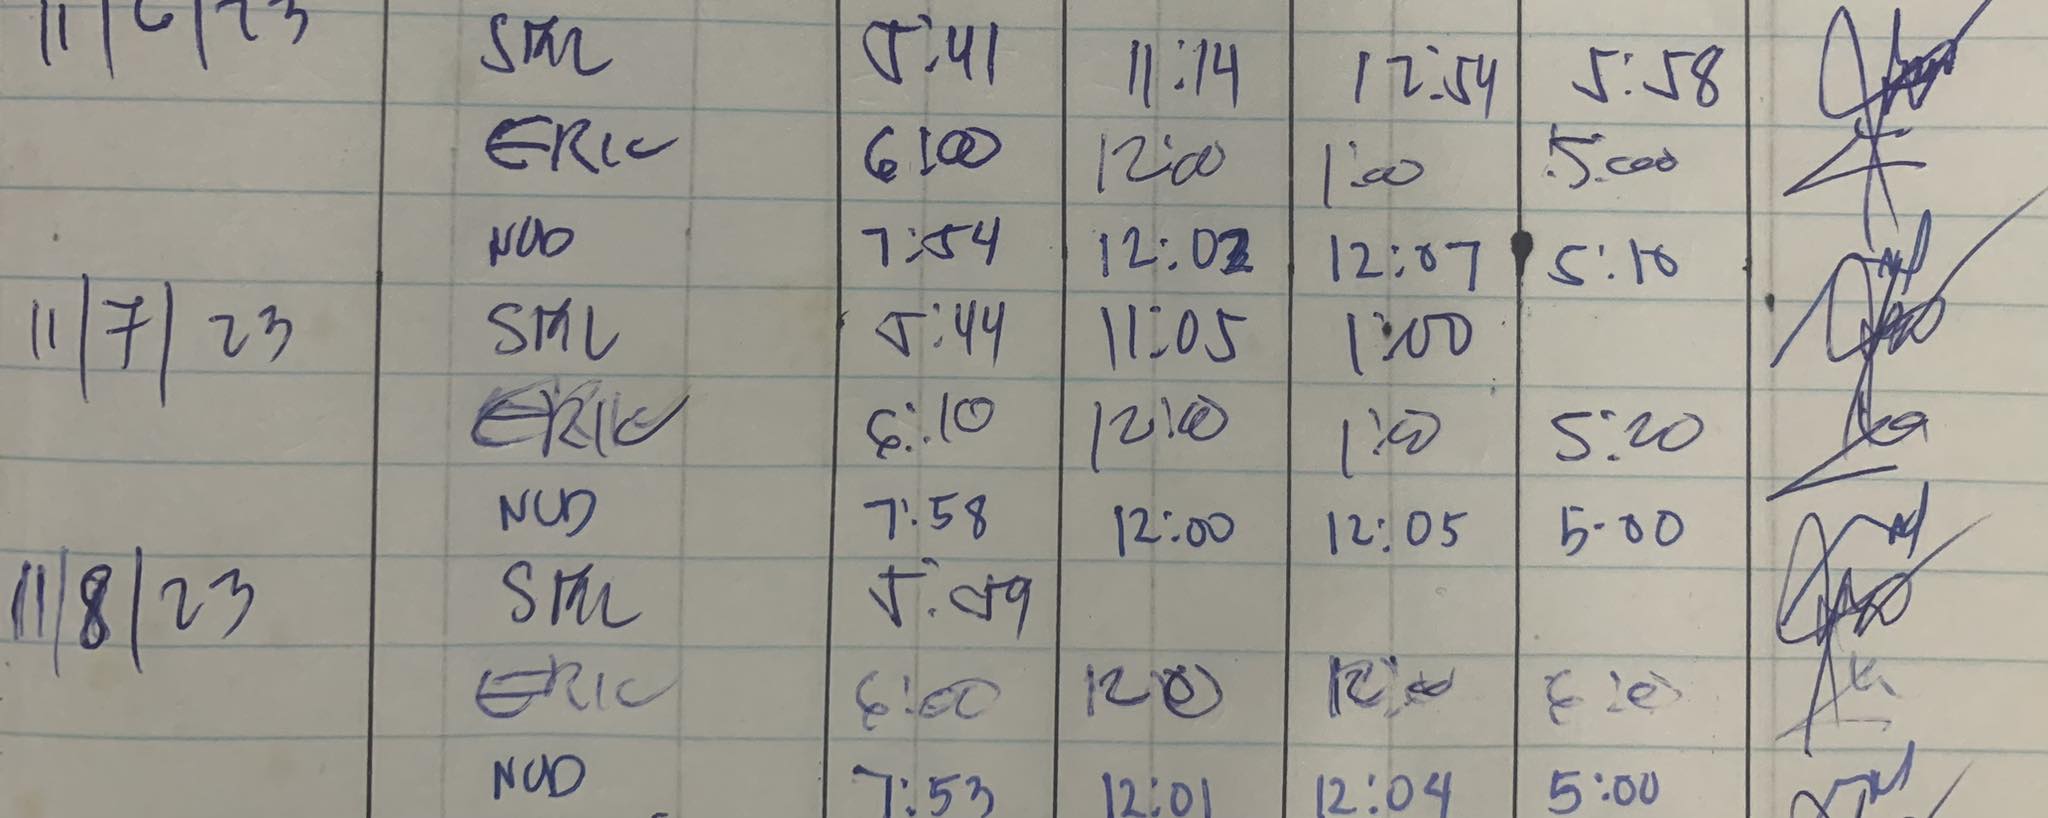 11/6/23 SML 5:41 11:14 12:54 5:58
ERIC 6:00 12:00 1:00 5:00
NUD 7:54 12:02 12:07 5:10
11/7/23 SML 5:44 11:05 1:00
ERIC 6:10 12:10 1:00 5:20
NUD 7:58 12:00 12:05 5:00
11/8/23 SML 5:59
ERIC 6:00 12:00 12:00 6:00
NUD 7:53 12:01 12:04 5:00